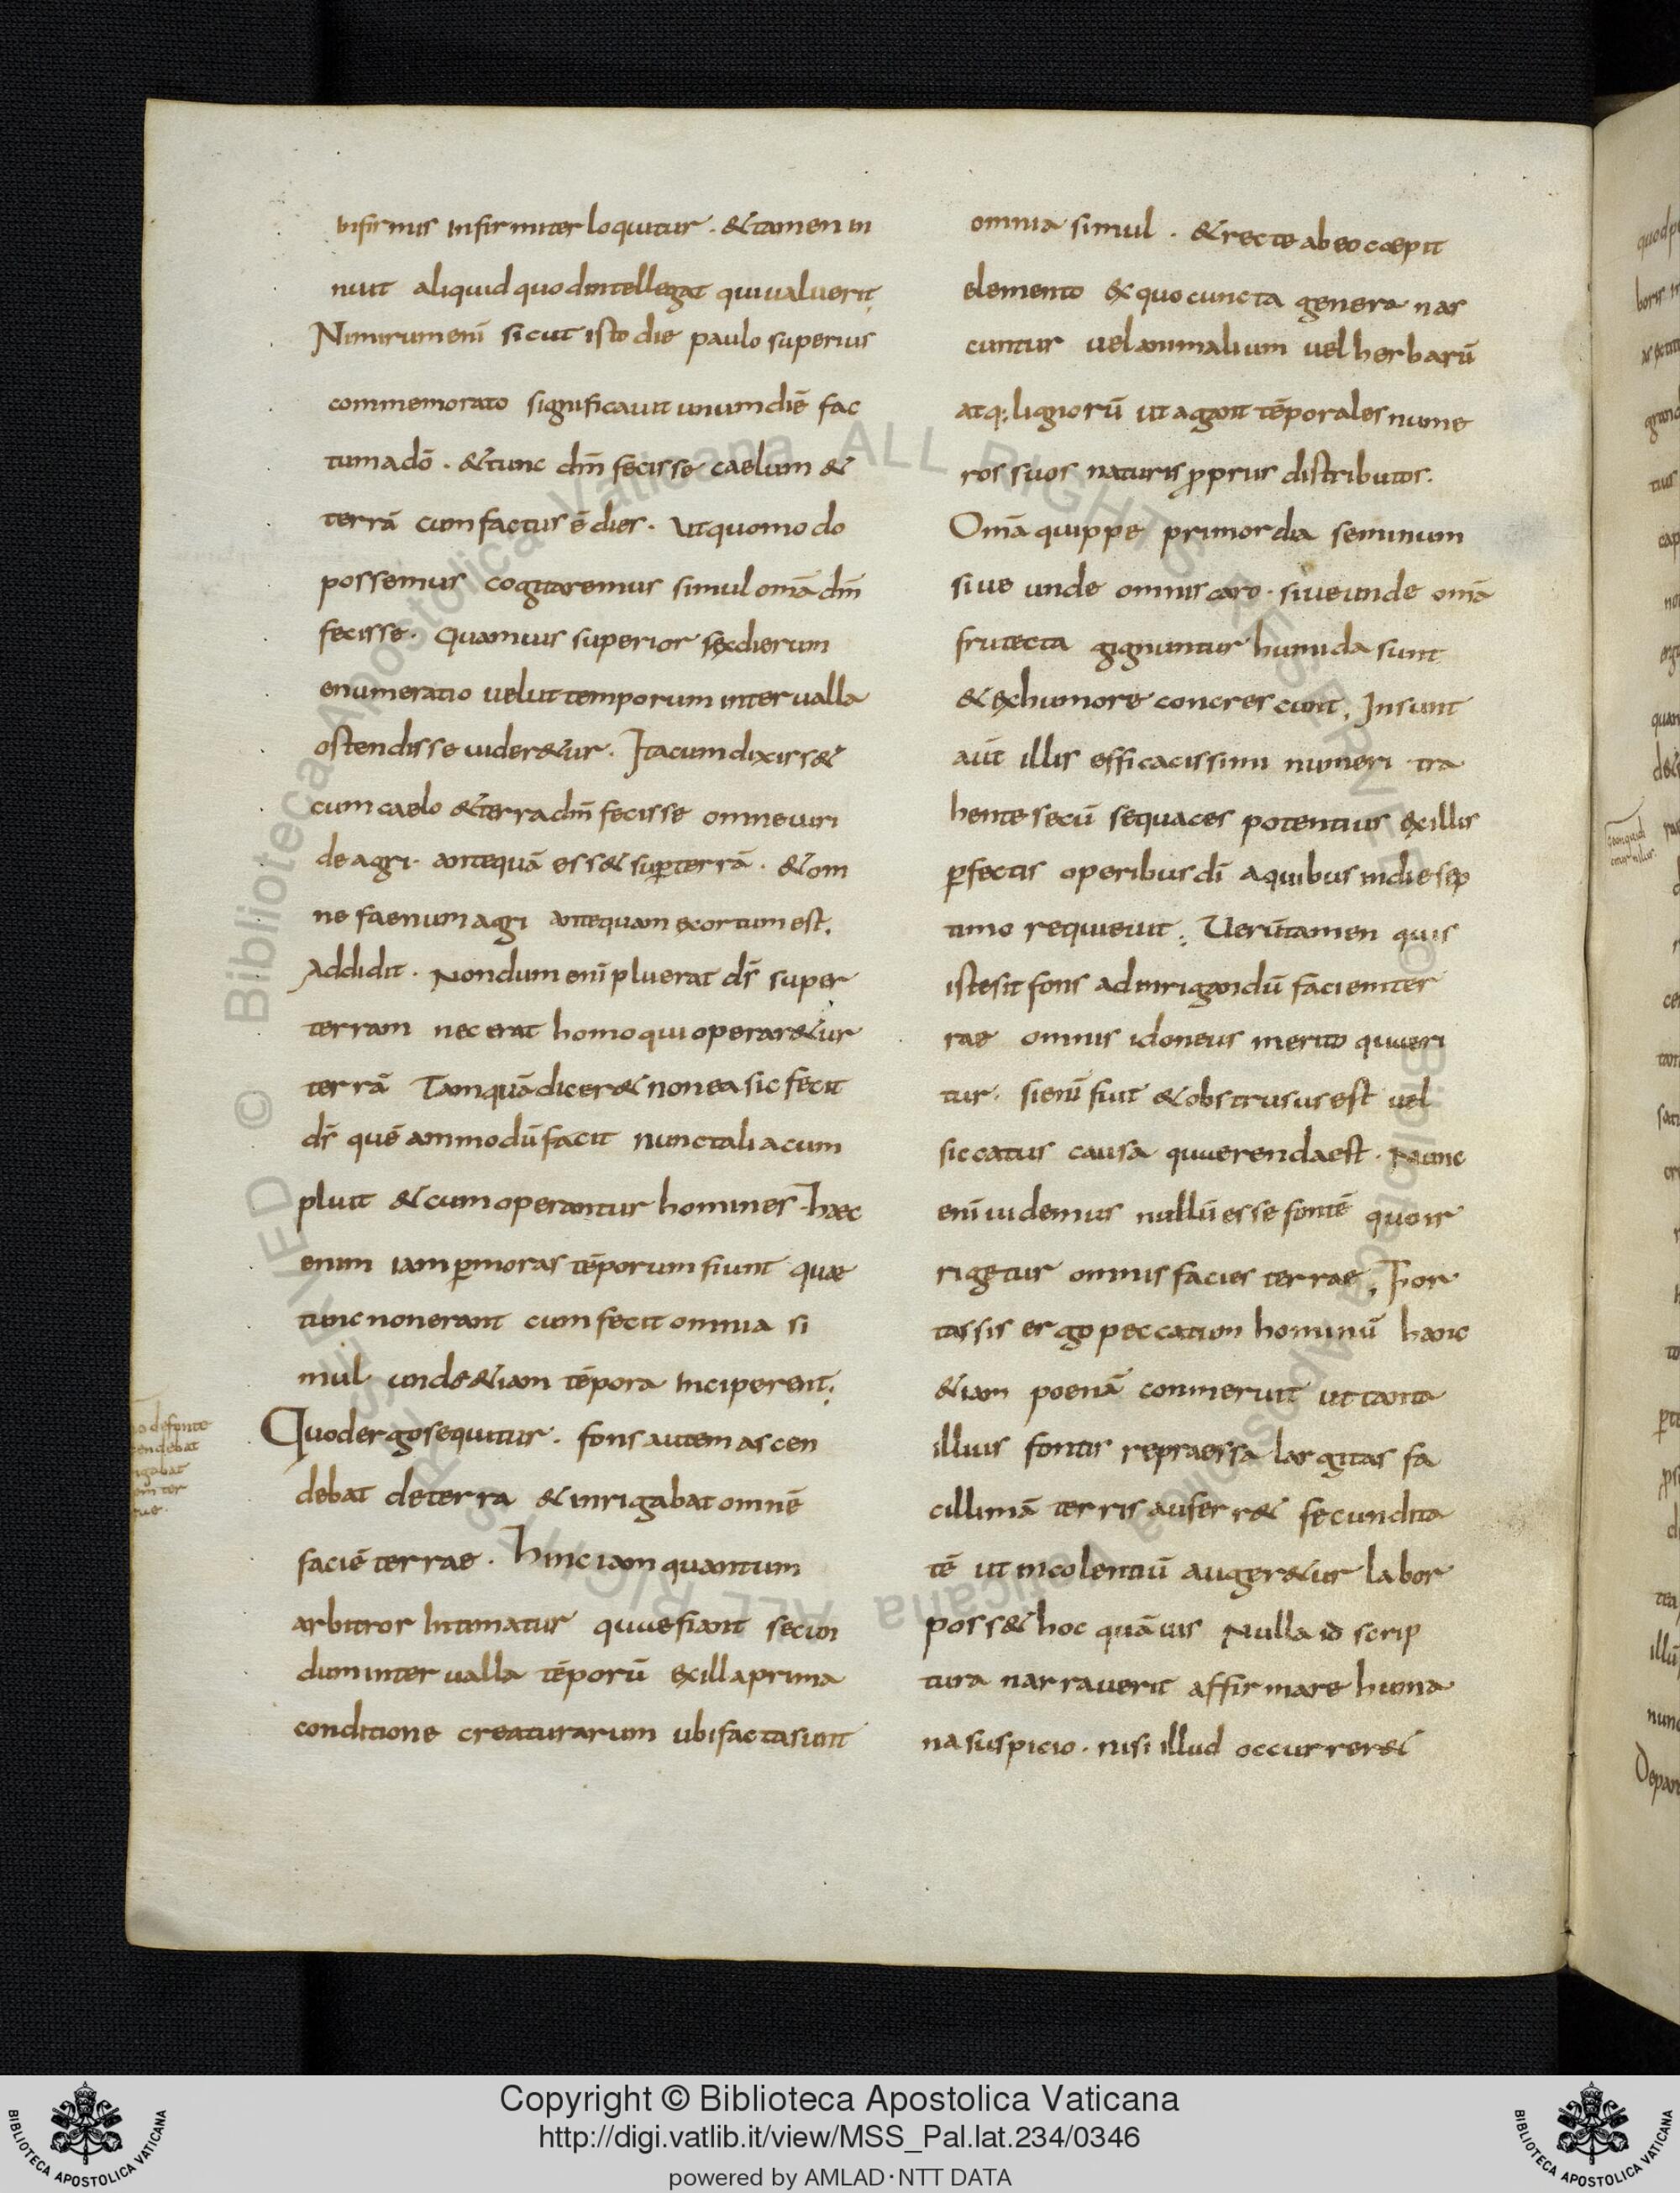 infirmis infirmiter loquitur . & tamen in
nuit aliquid quod intellegat qui ualuerit;
Nimirum enī sicut isto die paulo superius
commemorato significauit unum diē fac
tum a dō . & tunc dm̄ fecisse caelum &
terrā cum factus ē dies . ut quomodo
possemus cogitaremus simul om̄a dm̄
fecisse . quamuis superior sex dierum
enumeratio uelut temporum interualla
ostendisse uider&ur . Ita cum dixiss&
cum caelo & terra dm̄ fecisse omne uiri
de agri . antequā ess& sup̄ terrā . & om
ne faenum agri antequam exortum est.
Addidit . Nondum enī pluerat ds̄ super
terram nec erat homo qui operar&ur
terrā Tamquā dicer& non ea sic fecit
ds̄ quē ammodū facit nunc talia cum
pluit & cum operantur homines . haec
enim iam p̄ moras tēporum fiunt quae
tunc non erant cum fecit omnia si
mul unde &iam tēpora inciperent;
Quod ergo sequitur . fons autem ascen
debat de terra & inrigabat omnē
faciē terrae . hinc iam quantum
arbitror intimatur quae fiant secun
dum interualla tēporū ex illa prima
conditione creaturarum ubi facta sunt
omnia simul . & recte ab eo coepit
elemento ex quo cuncta genera nas
cuntur uel animalium uel herbarū
atq; lignorū ut agant tēporales nume
ros suos naturis propriis distributos.
Om̄a quippe primordia seminum
siue unde omnis caro . siue unde om̄a
frutecta gignuntur humida sunt
& ex humore concrescunt, Insunt
aūt illis efficacissimi numeri tra
hente secū sequaces potentius ex illis
p̄fectis operibus dī a quibus in die sep
timo requieuit; Uerūtamen quis
iste sit fons ad inrigandū faciem ter
rae omnis idoneus merito quaeri
tur . si enī fuit & obstrusus est uel
siccatus causa quaerenda est . Nunc
enī uidemus nullū esse fontē quo ir
rigetur omnis facies terrae, For
tassis ergo peccatum hominū hanc
&iam poenā commeruit ut tanta
illius fontis repraessa largitas fa
cillimā terris auferr& fecundita
tē ut incolentiū auger&ur labor
poss& hoc quāuis Nulla id scrip
tura narrauerit affirmare huma
na suspicio . nisi illud occurrer&
de fonte
endebat
gabat
ter
tamquā
Biblioteca Apostolica Vaticana ALL RIGHTS RESERVED ©
Biblioteca Apostolica Vaticana ALL RIGHTS RESERVED ©
Copyright © Biblioteca Apostolica Vaticana
http://digi.vatlib.it/view/MSS_Pal.lat.234/0346
powered by AMLAD·NTT DATA
BIBLIOTECA APOSTOLICA VATICANA
BIBLIOTECA APOSTOLICA VATICANA